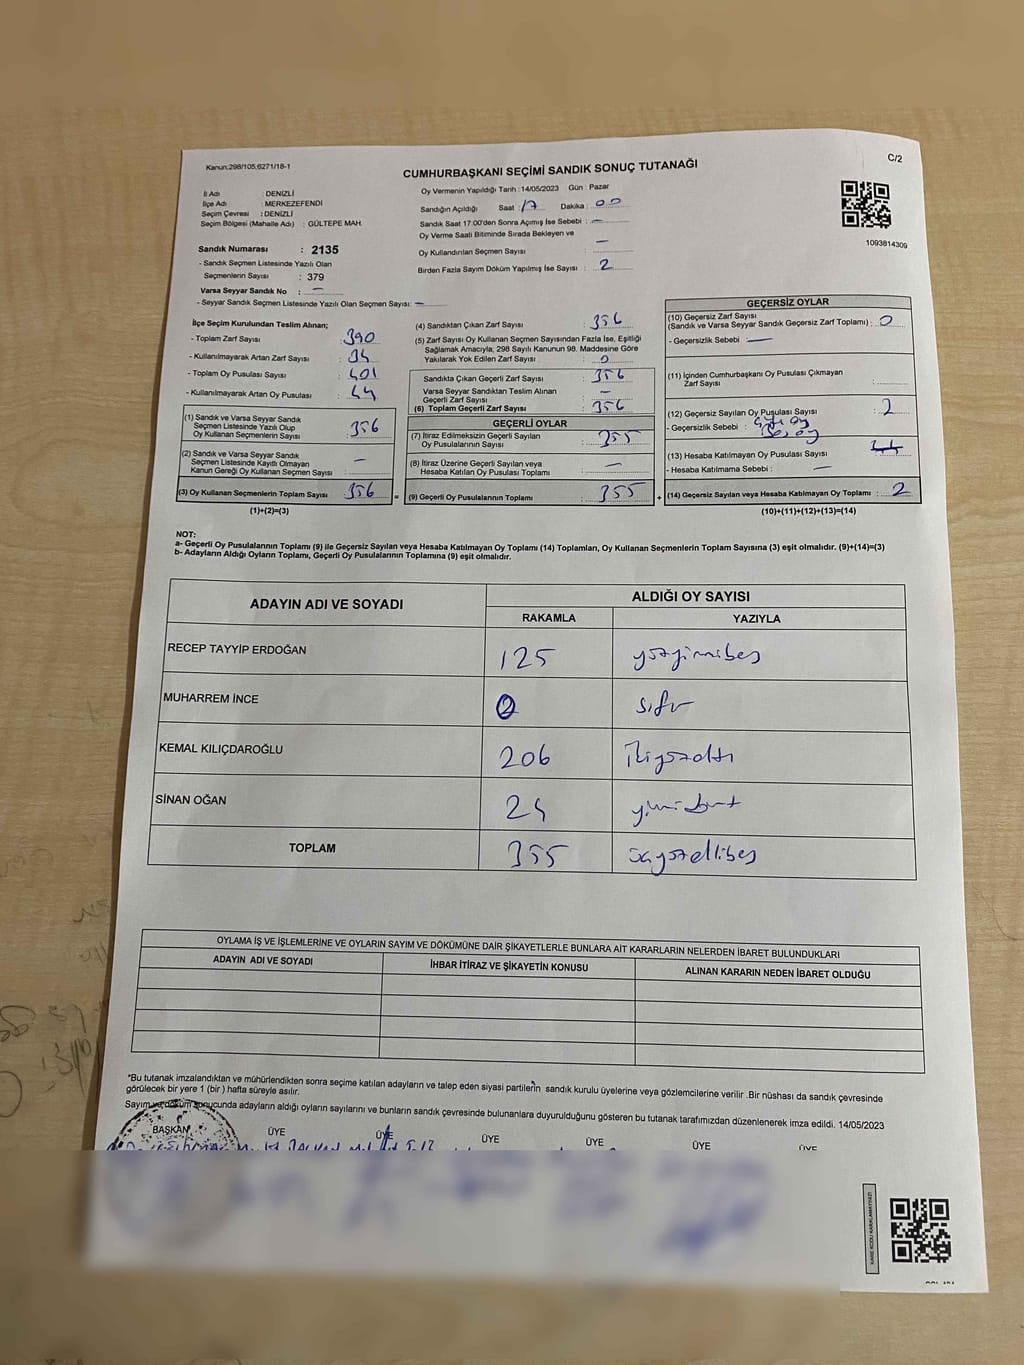 Kanun:298/105;6271/18-1
C/2
CUMHURBAŞKANI SEÇİMİ SANDIK SONUÇ TUTANAĞI
İl Adı : DENİZLİ
İlçe Adı : MERKEZEFENDİ
Seçim Çevresi : DENİZLİ
Seçim Bölgesi (Mahalle Adı) : GÜLTEPE MAH.
Sandık Numarası : 2135
- Sandık Seçmen Listesinde Yazılı Olan
Seçmenlerin Sayısı : 379
Varsa Seyyar Sandık No : —
- Seyyar Sandık Seçmen Listesinde Yazılı Olan Seçmen Sayısı: —
Oy Vermenin Yapıldığı Tarih : 14/05/2023 Gün : Pazar
Sandığın Açıldığı Saat : 17 Dakika : 00
Sandık Saat 17:00'den Sonra Açımış İse Sebebi : —
Oy Verme Saati Bitiminde Sırada Bekleyen ve
Oy Kullandırılan Seçmen Sayısı : —
Birden Fazla Sayım Döküm Yapılmış İse Sayısı : 2
1093814309
İlçe Seçim Kurulundan Teslim Alınan;
- Toplam Zarf Sayısı : 390
- Kullanılmayarak Artan Zarf Sayısı : 34
- Toplam Oy Pusulası Sayısı : 401
- Kullanılmayarak Artan Oy Pusulası : 44
(1) Sandık ve Varsa Seyyar Sandık
Seçmen Listesinde Yazılı Olup
Oy Kullanan Seçmenlerin Sayısı : 356
(2) Sandık ve Varsa Seyyar Sandık
Seçmen Listesinde Kayıtlı Olmayan
Kanun Gereği Oy Kullanan Seçmen Sayısı : —
(3) Oy Kullanan Seçmenlerin Toplam Sayısı : 356
(1)+(2)=(3)
(4) Sandıktan Çıkan Zarf Sayısı : 356
(5) Zarf Sayısı Oy Kullanan Seçmen Sayısından Fazla İse, Eşitliği
Sağlamak Amacıyla, 298 Sayılı Kanunun 98. Maddesine Göre
Yakılarak Yok Edilen Zarf Sayısı : 0
Sandıkta Çıkan Geçerli Zarf Sayısı : 356
Varsa Seyyar Sandıktan Teslim Alınan
Geçerli Zarf Sayısı : —
(6) Toplam Geçerli Zarf Sayısı : 356
GEÇERLİ OYLAR
(7) İtiraz Edilmeksizin Geçerli Sayılan
Oy Pusulalarının Sayısı : 355
(8) İtiraz Üzerine Geçerli Sayılan veya
Hesaba Katılan Oy Pusulası Toplamı : —
= (9) Geçerli Oy Pusulalarının Toplamı : 355 +
GEÇERSİZ OYLAR
(10) Geçersiz Zarf Sayısı
(Sandık ve Varsa Seyyar Sandık Geçersiz Zarf Toplamı) : 0
- Geçersizlik Sebebi : —
(11) İçinden Cumhurbaşkanı Oy Pusulası Çıkmayan
Zarf Sayısı :
(12) Geçersiz Sayılan Oy Pusulası Sayısı : 2
- Geçersizlik Sebebi :
(13) Hesaba Katılmayan Oy Pusulası Sayısı :
- Hesaba Katılmama Sebebi : —
(14) Geçersiz Sayılan veya Hesaba Katılmayan Oy Toplamı : 2
(10)+(11)+(12)+(13)=(14)
NOT:
a- Geçerli Oy Pusulalarının Toplamı (9) ile Geçersiz Sayılan veya Hesaba Katılmayan Oy Toplamı (14) Toplamları, Oy Kullanan Seçmenlerin Toplam Sayısına (3) eşit olmalıdır. (9)+(14)=(3)
b- Adayların Aldığı Oyların Toplamı, Geçerli Oy Pusulalarının Toplamına (9) eşit olmalıdır.
ADAYIN ADI VE SOYADI
ALDIĞI OY SAYISI
RAKAMLA YAZIYLA
RECEP TAYYİP ERDOĞAN 125 yüzyirmibeş
MUHARREM İNCE sıfır
KEMAL KILIÇDAROĞLU 206 ikiyüzaltı
SİNAN OĞAN 24 yirmidört
TOPLAM 355 üçyüzellibeş
OYLAMA İŞ VE İŞLEMLERİNE VE OYLARIN SAYIM VE DÖKÜMÜNE DAİR ŞİKAYETLERLE BUNLARA AİT KARARLARIN NELERDEN İBARET BULUNDUKLARI
ADAYIN ADI VE SOYADI İHBAR İTİRAZ VE ŞİKAYETİN KONUSU ALINAN KARARIN NEDEN İBARET OLDUĞU
*Bu tutanak imzalandıktan ve mühürlendikten sonra seçime katılan adayların ve talep eden siyasi partilerin sandık kurulu üyelerine veya gözlemcilerine verilir .Bir nüshası da sandık çevresinde
görülecek bir yere 1 (bir ) hafta süreyle asılır.
Sayım ve döküm sonucunda adayların aldığı oyların sayılarını ve bunların sandık çevresinde bulunanlara duyurulduğunu gösteren bu tutanak tarafımızdan düzenlenerek imza edildi. 14/05/2023
BAŞKAN ÜYE ÜYE ÜYE ÜYE ÜYE ÜYE